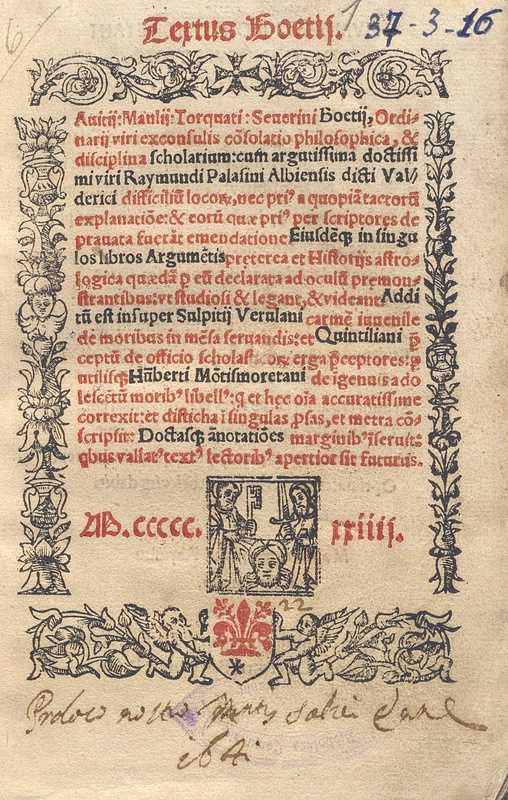 Textus Boetij.
37-3-16
Anitij: Manlij: Torquati: Seuerini Boetij, Ordi-
narij viri exconsulis cõsolatio philosophica, &
disciplina scholarium: cum argutissima doctissi
mi viri Raymundi Palasini Albiensis dicti Val/
derici difficiliũ locoꝝ, nec priꝰ a quopiã tactorũ
explanatiõe: & eorũ quæ priꝰ per scriptores de
prauata fuerãt emendatione Eiusdẽqꝫ in singu
los libros Argumẽtis preterea et Historijs astro-
logica quædã ꝑ eũ declarata ad oculũ premon-
strantibus: vt studiosi & legant, & videant Addi
tũ est insuper Sulpitij Verulani carmẽ iuuenile
de moribus in mẽsa seruandis: et Quintiliani ꝓ
ceptũ de officio scholasticoꝝ erga p̃ceptores: ꝑ
utilisqꝫ Hũberti Mõtismoretani de igenuis ado
lescẽtũ moribꝰ libellꝰ: q et hec oĩa accuratissime
correxit: et disticha ĩ singulas ꝓsas, et metra cõ-
scripsit: Doctasqꝫ ãnotatiões marginibꝰ ĩseruit:
qbus vallatꝰ textꝰ lectoribꝰ apertior sit futurus.
M.ccccc. xxiiij.
22